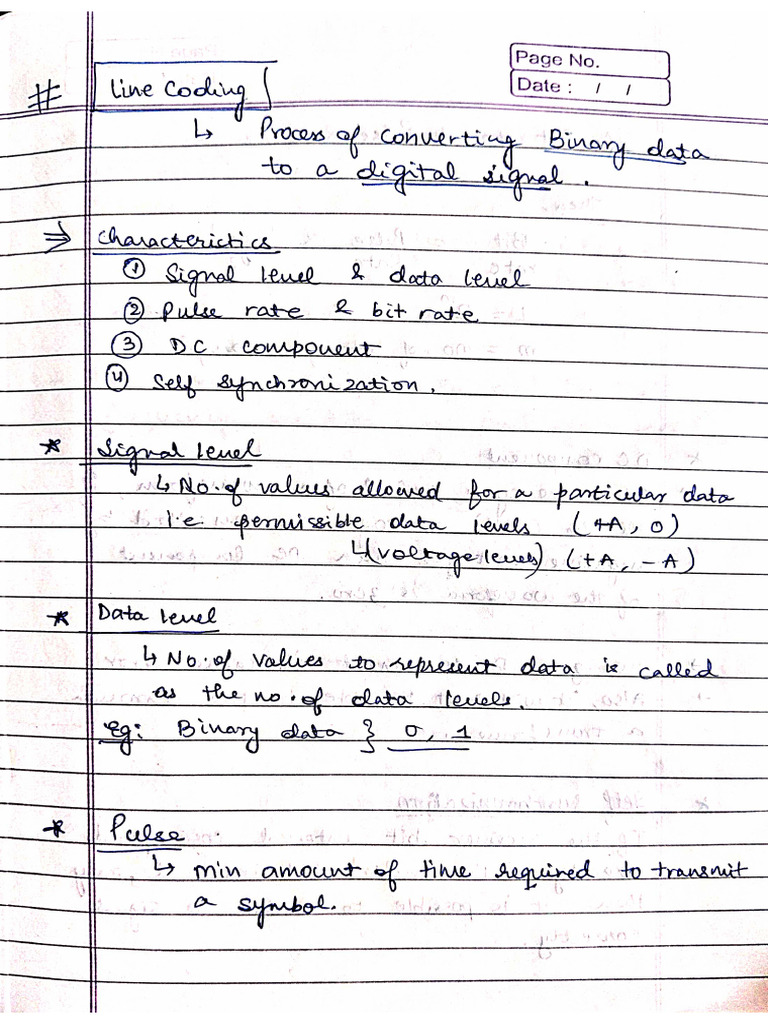 Page No.
Date : / /
# Line Coding
↳ Process of converting Binary data
to a digital signal.
⇒ Characterictics
① Signal level & data level
② Pulse rate & bit rate
③ DC component
④ Self synchronization.
* Signal level
↳ No. of values allowed for a particular data
i.e permissible data levels (+A, 0)
↳(voltage levels) (+A, -A)
* Data level
↳ No. of values to represent data is called
as the no. of data levels.
Eg: Binary data } 0, 1
* Pulse
↳ min amount of time required to transmit
a symbol.